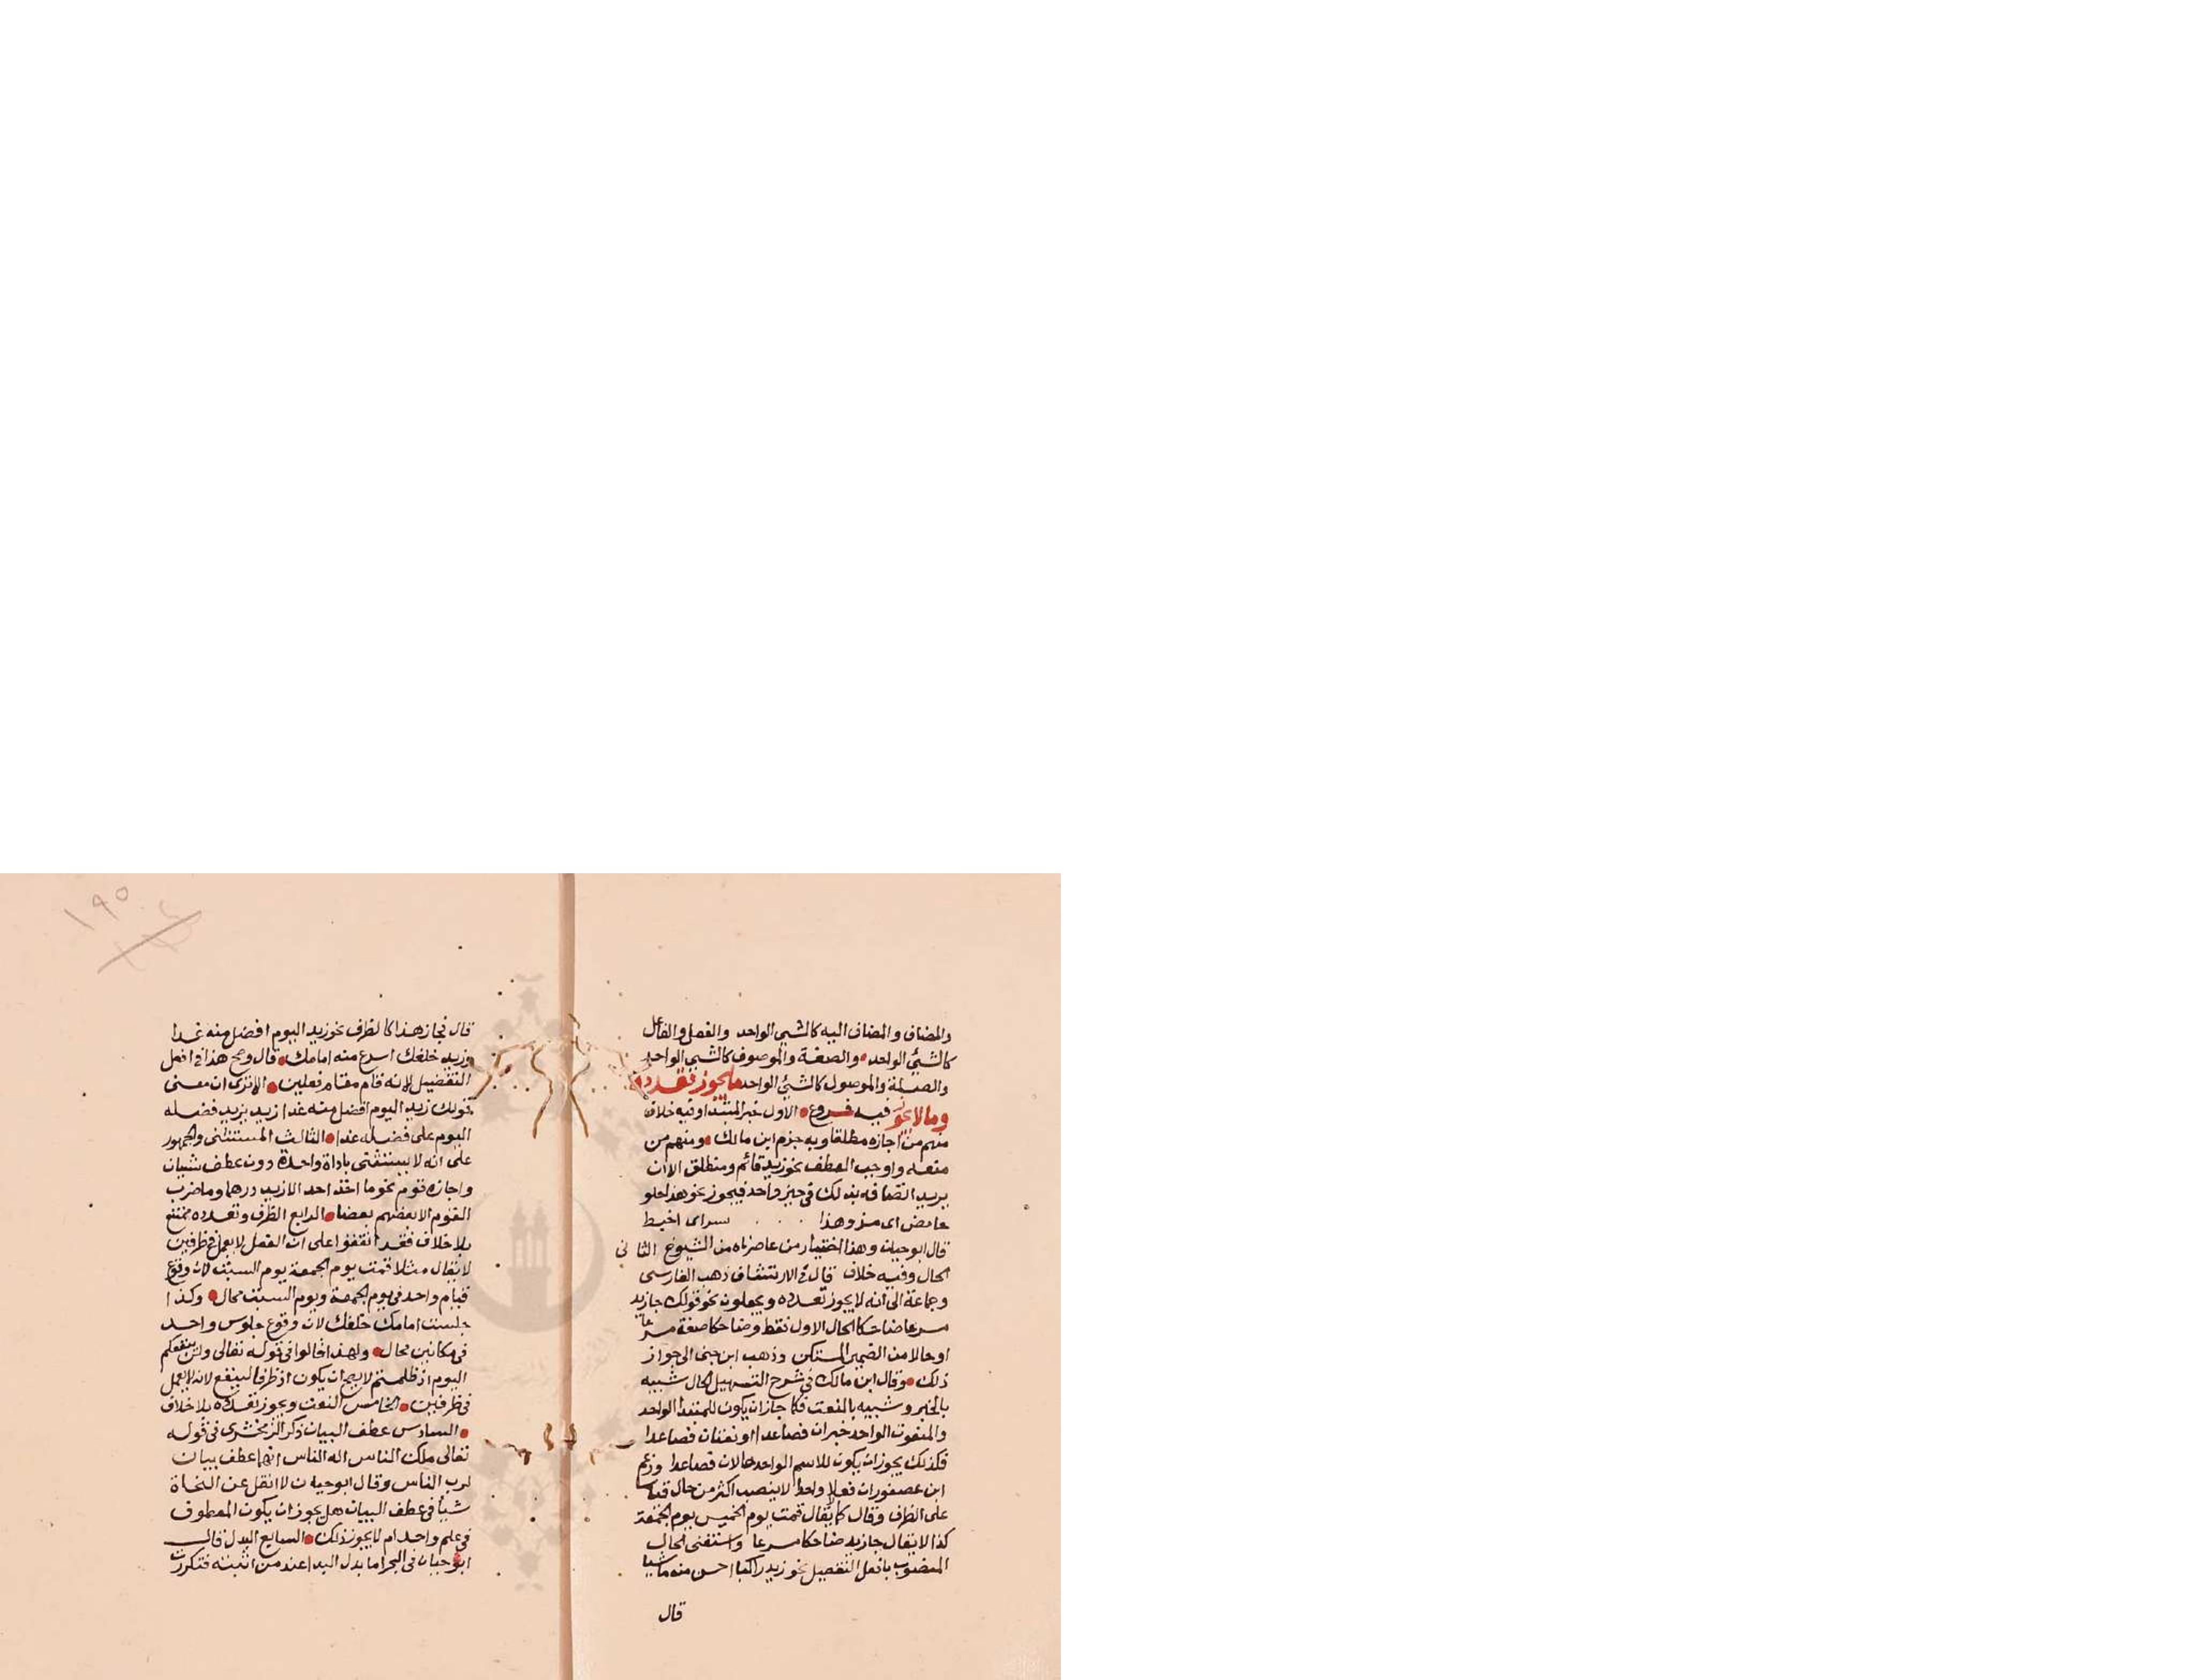 والمضاف والمضاف اليه كالشي الواحد والفعل والفاعل
كالشئ الواحد والصفة والموصوف كالشي الواحد
والصلة والموصول كالشئ الواحد ما يجوز تعدده
وما لا يجوز فيه فروع الاول خبر المبتدا وفيه خلاف
منهم من اجازه مطلقا وبه جزم ابن مالك ومنهم من
منعه واوجب العطف نحو زيد قائم ومنطلق الا ان
يريد اتصافه بذلك في حين واحد فيجوز نحو هذا حلو
حامض اى مز وهذا اعسر يسر اى اضبط
قال ابو حيان وهذا اختيار من عاصرناه من الشيوخ الثانى
الحال وفيه خلاف قال فى الارتشاف ذهب الفارسى
وجماعة الى انه لا يجوز تعدده ويجعلون نحو قولك جا زيد
مسرعا ضاحكا الحال الاول فقط وضاحكا صفة مسرعا
او حالا من الضمير المستكن وذهب ابن جنى الى جواز
ذلك وقال ابن مالك فى شرح التسهيل الحال شبيه
بالخبر وشبيه بالنعت فكما جاز ان يكون للمبتدا الواحد
والمنعوت الواحد خبران فصاعدا او نعتان فصاعدا
فكذلك يجوز ان يكون للاسم الواحد حالان فصاعدا وزعم
ابن عصفور ان فعلا واحدا لا ينصب اكثر من حال قياسا
على الظرف وقال كما لا يقال قمت يوم الخميس يوم الجمعة
كذا لا يقال جا زيد ضاحكا مسرعا واستثنى الحال
المنصوب بافعل التفضيل نحو زيد راكبا احسن منه ماشيا
قال
قال فجاز هذا كالظرف نحو زيد اليوم افضل منه غدا
وزيد خلفك اسرع منه امامك قال وصح هذا فى افعل
التفضيل لانه قام مقام فعلين الا ترى ان معنى
قولك زيد اليوم افضل منه غدا زيد يزيد فضله
اليوم على فضله غدا الثالث المستثنى والجمهور
على انه لا يستثنى باداة واحدة دون عطف شيان
واجازه قوم نحو ما اخذ احد الا زيد درهما وما ضرب
القوم الا بعضهم بعضا الرابع الظرف وتعدده ممتنع
بلا خلاف فقد اتفقوا على ان الفعل لا يعمل فى ظرفين
لا يقال مثلا قمت يوم الجمعة يوم السبت لان وقوع
قيام واحد فى يوم الجمعة ويوم السبت محال وكذا
جلست امامك خلفك لان وقوع جلوس واحد
فى مكانين محال ولهذا قالوا فى قوله تعالى ولن ينفعكم
اليوم اذ ظلمتم لا يصح ان يكون اذ ظرفا لينفع لانه لا يعمل
فى ظرفين الخامس النعت ويجوز تعدده بلا خلاف
السادس عطف البيان ذكر الزمخشرى فى قوله
تعالى ملك الناس اله الناس انهما عطف بيان
لرب الناس وقال ابو حيان لا انقل عن النحاة
شيأ فى عطف البيان هل يجوز ان يكون المعطوف
فى علم واحد ام لا يجوز ذلك السابع البدل قال
ابو حيان فى البحر اما بدل البدا عند من اثبته فتكررت
١٩٥